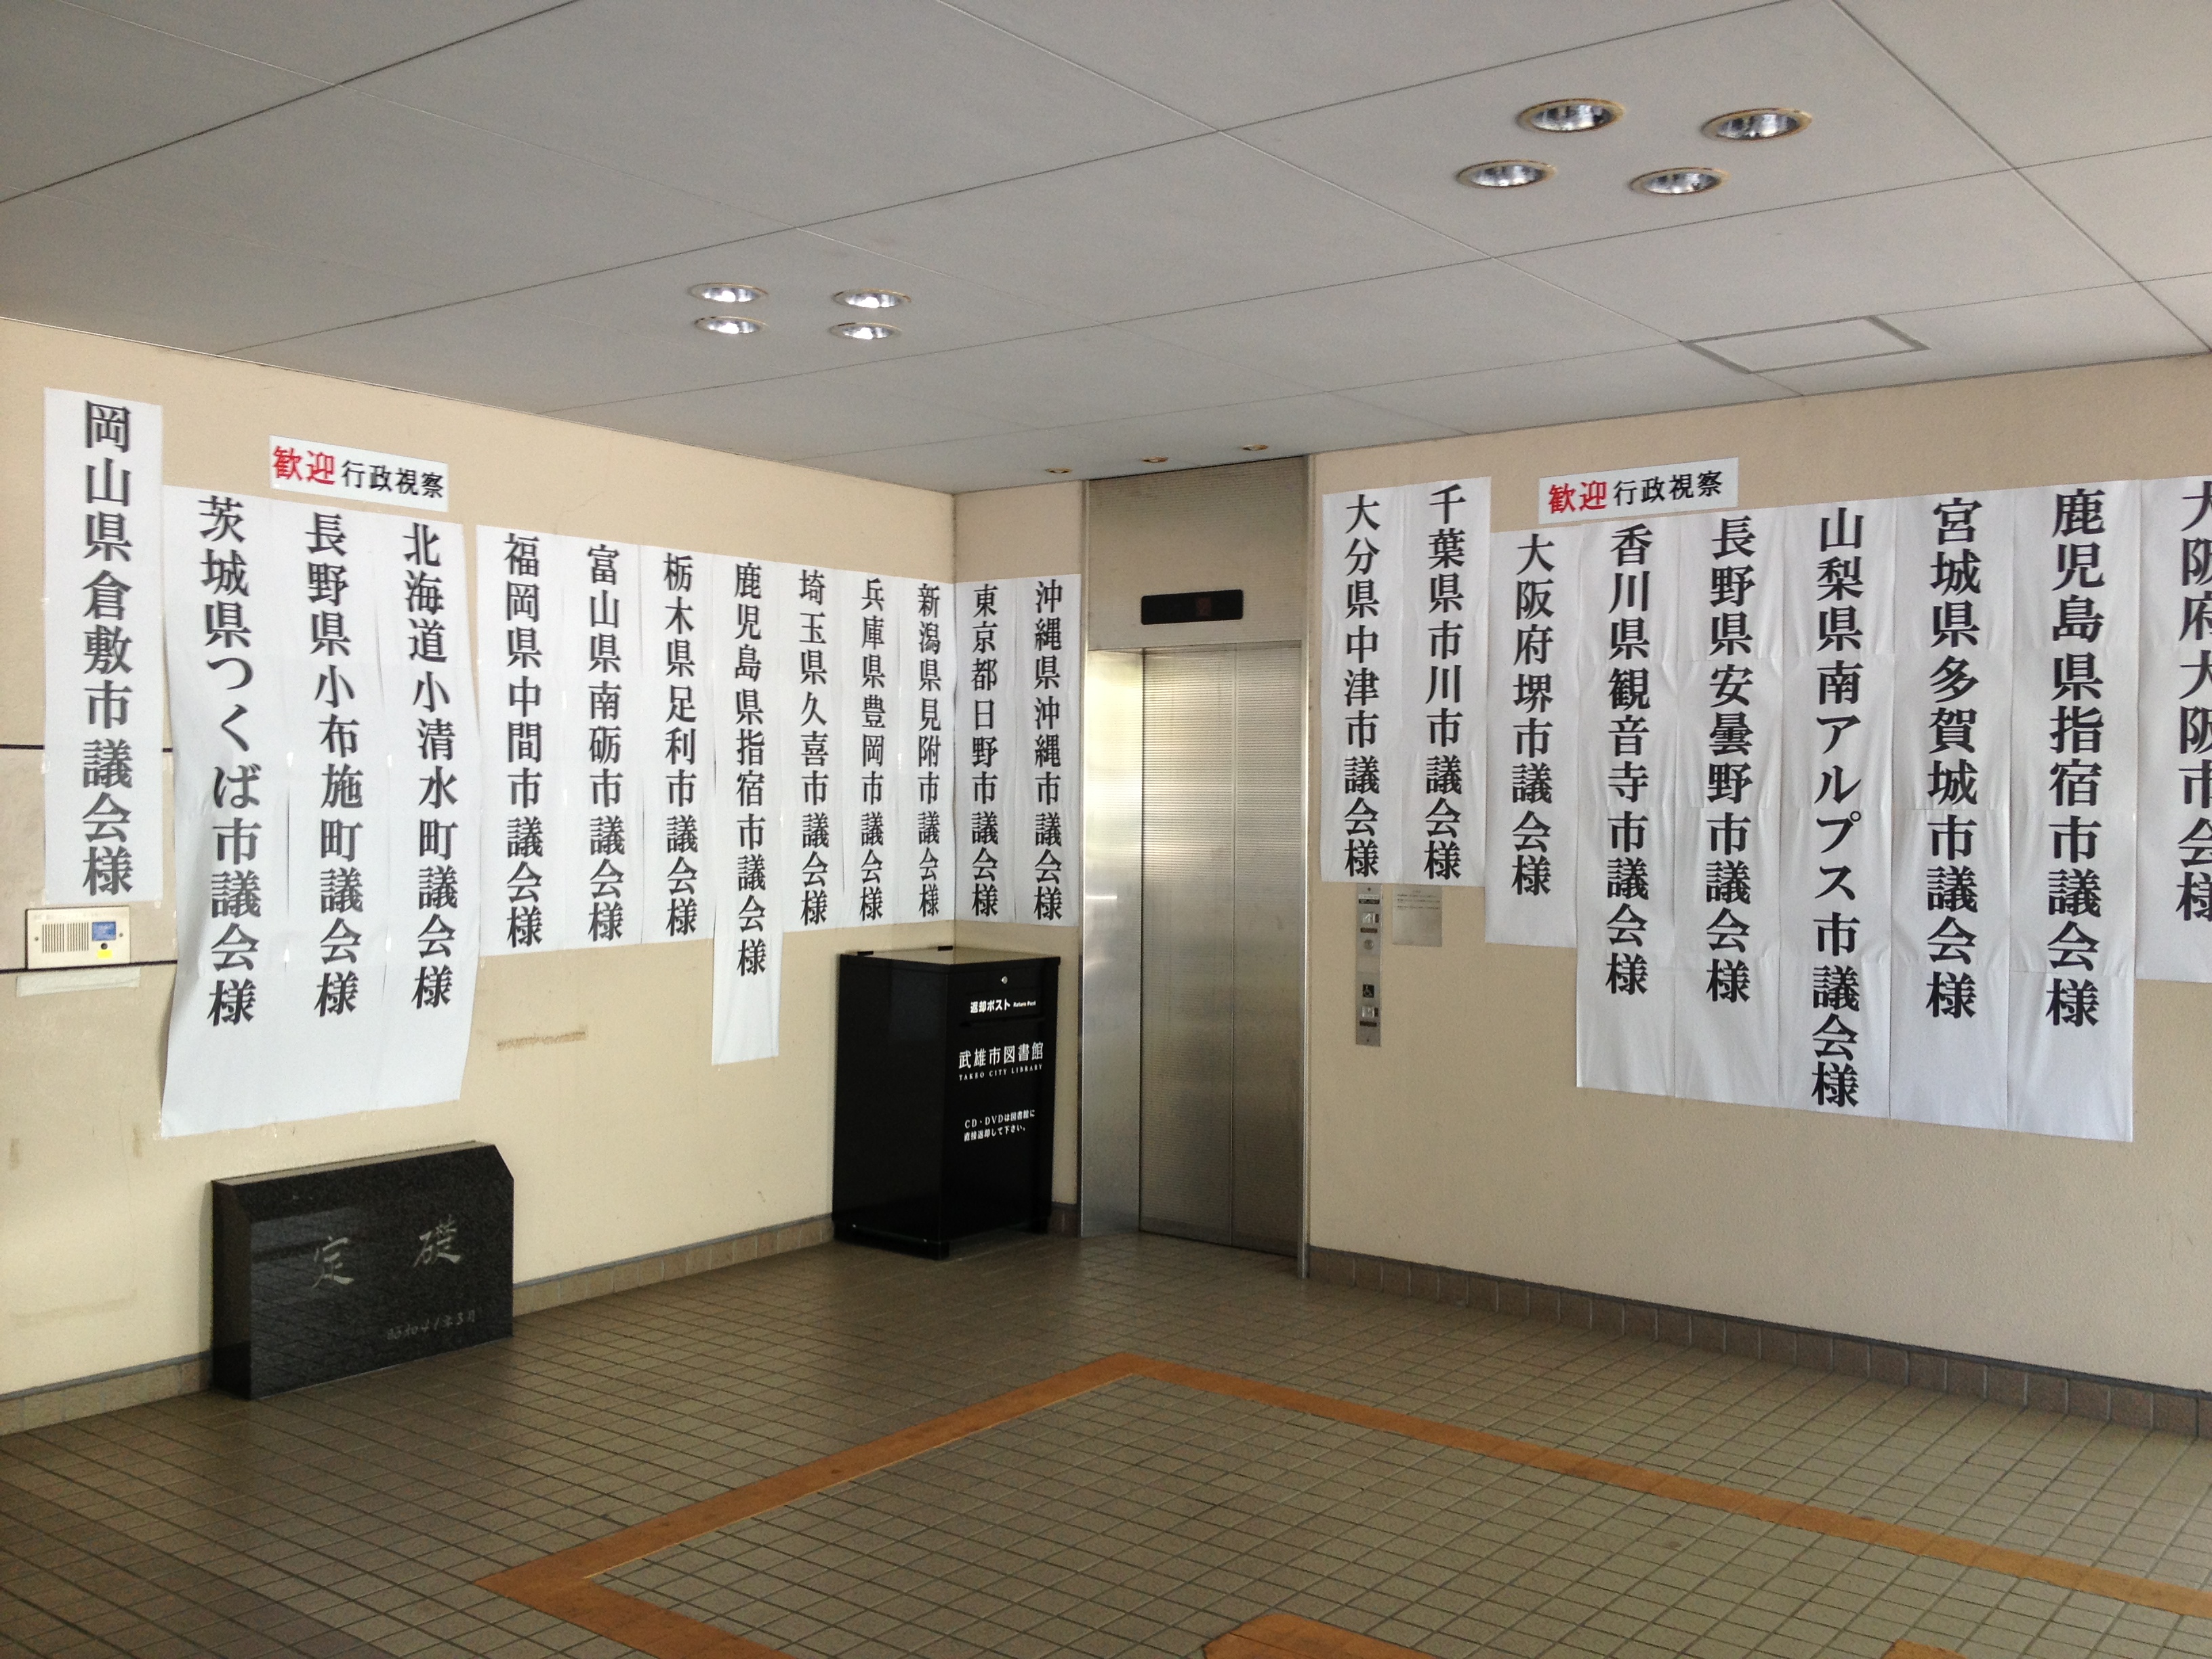 岡山県倉敷市議会様
歓迎 行政視察
茨城県つくば市議会様
長野県小布施町議会様
北海道小清水町議会様
福岡県中間市議会様
富山県南砺市議会様
栃木県足利市議会様
鹿児島県指宿市議会様
埼玉県久喜市議会様
兵庫県豊岡市議会様
新潟県見附市議会様
東京都日野市議会様
沖縄県沖縄市議会様
大分県中津市議会様
千葉県市川市議会様
歓迎 行政視察
大阪府堺市議会様
香川県観音寺市議会様
長野県安曇野市議会様
山梨県南アルプス市議会様
宮城県多賀城市議会様
鹿児島県指宿市議会様
大阪府大阪市会様
返却ポスト Return Post
武雄市図書館
TAKEO CITY LIBRARY
CD・DVDは図書館に
直接返却して下さい。
定礎
昭和41年3月